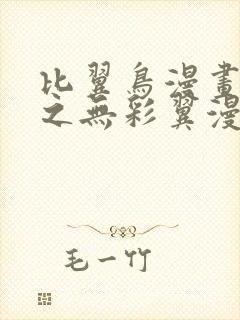 比翼鳥漫畫
之無彩翼漫
毛一竹